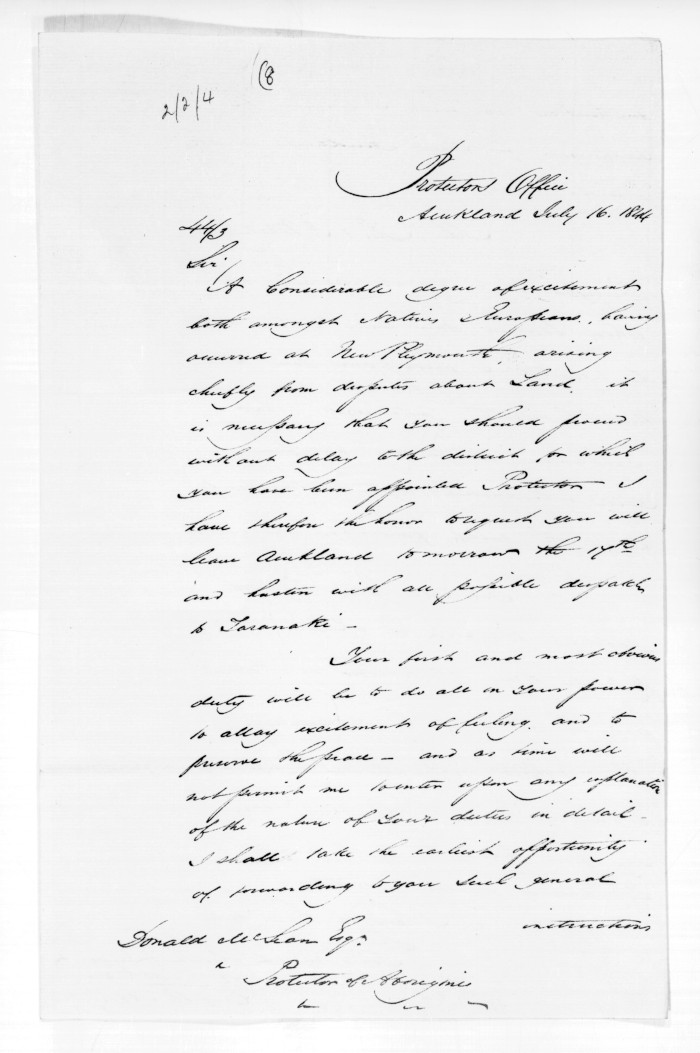 (8
2/2/4
Protectors Office
Auckland July 16. 1844
44/3
Sir,
A Considerable degree of excitement
both amongst Natives & Europeans, having
occurred at New Plymouth, arising
chiefly from disputes about Land, it
is necessary that you should proceed
without delay to the district for which
you have been appointed Protector I
have therefore the honor to request you will
leave Auckland tomorrow the 17th
and hasten with all possible despatch
to Taranaki –
Your first and most obvious
duty will be to do all in your power
to allay excitement of feeling, and to
preserve the peace – and as time will
not permit me to enter upon any explanation
of the nature of your duties in detail –
I shall take the earliest opportunity
of forwarding to you such general
instructions
Donald McLean Esqr
Protector of Aborigines